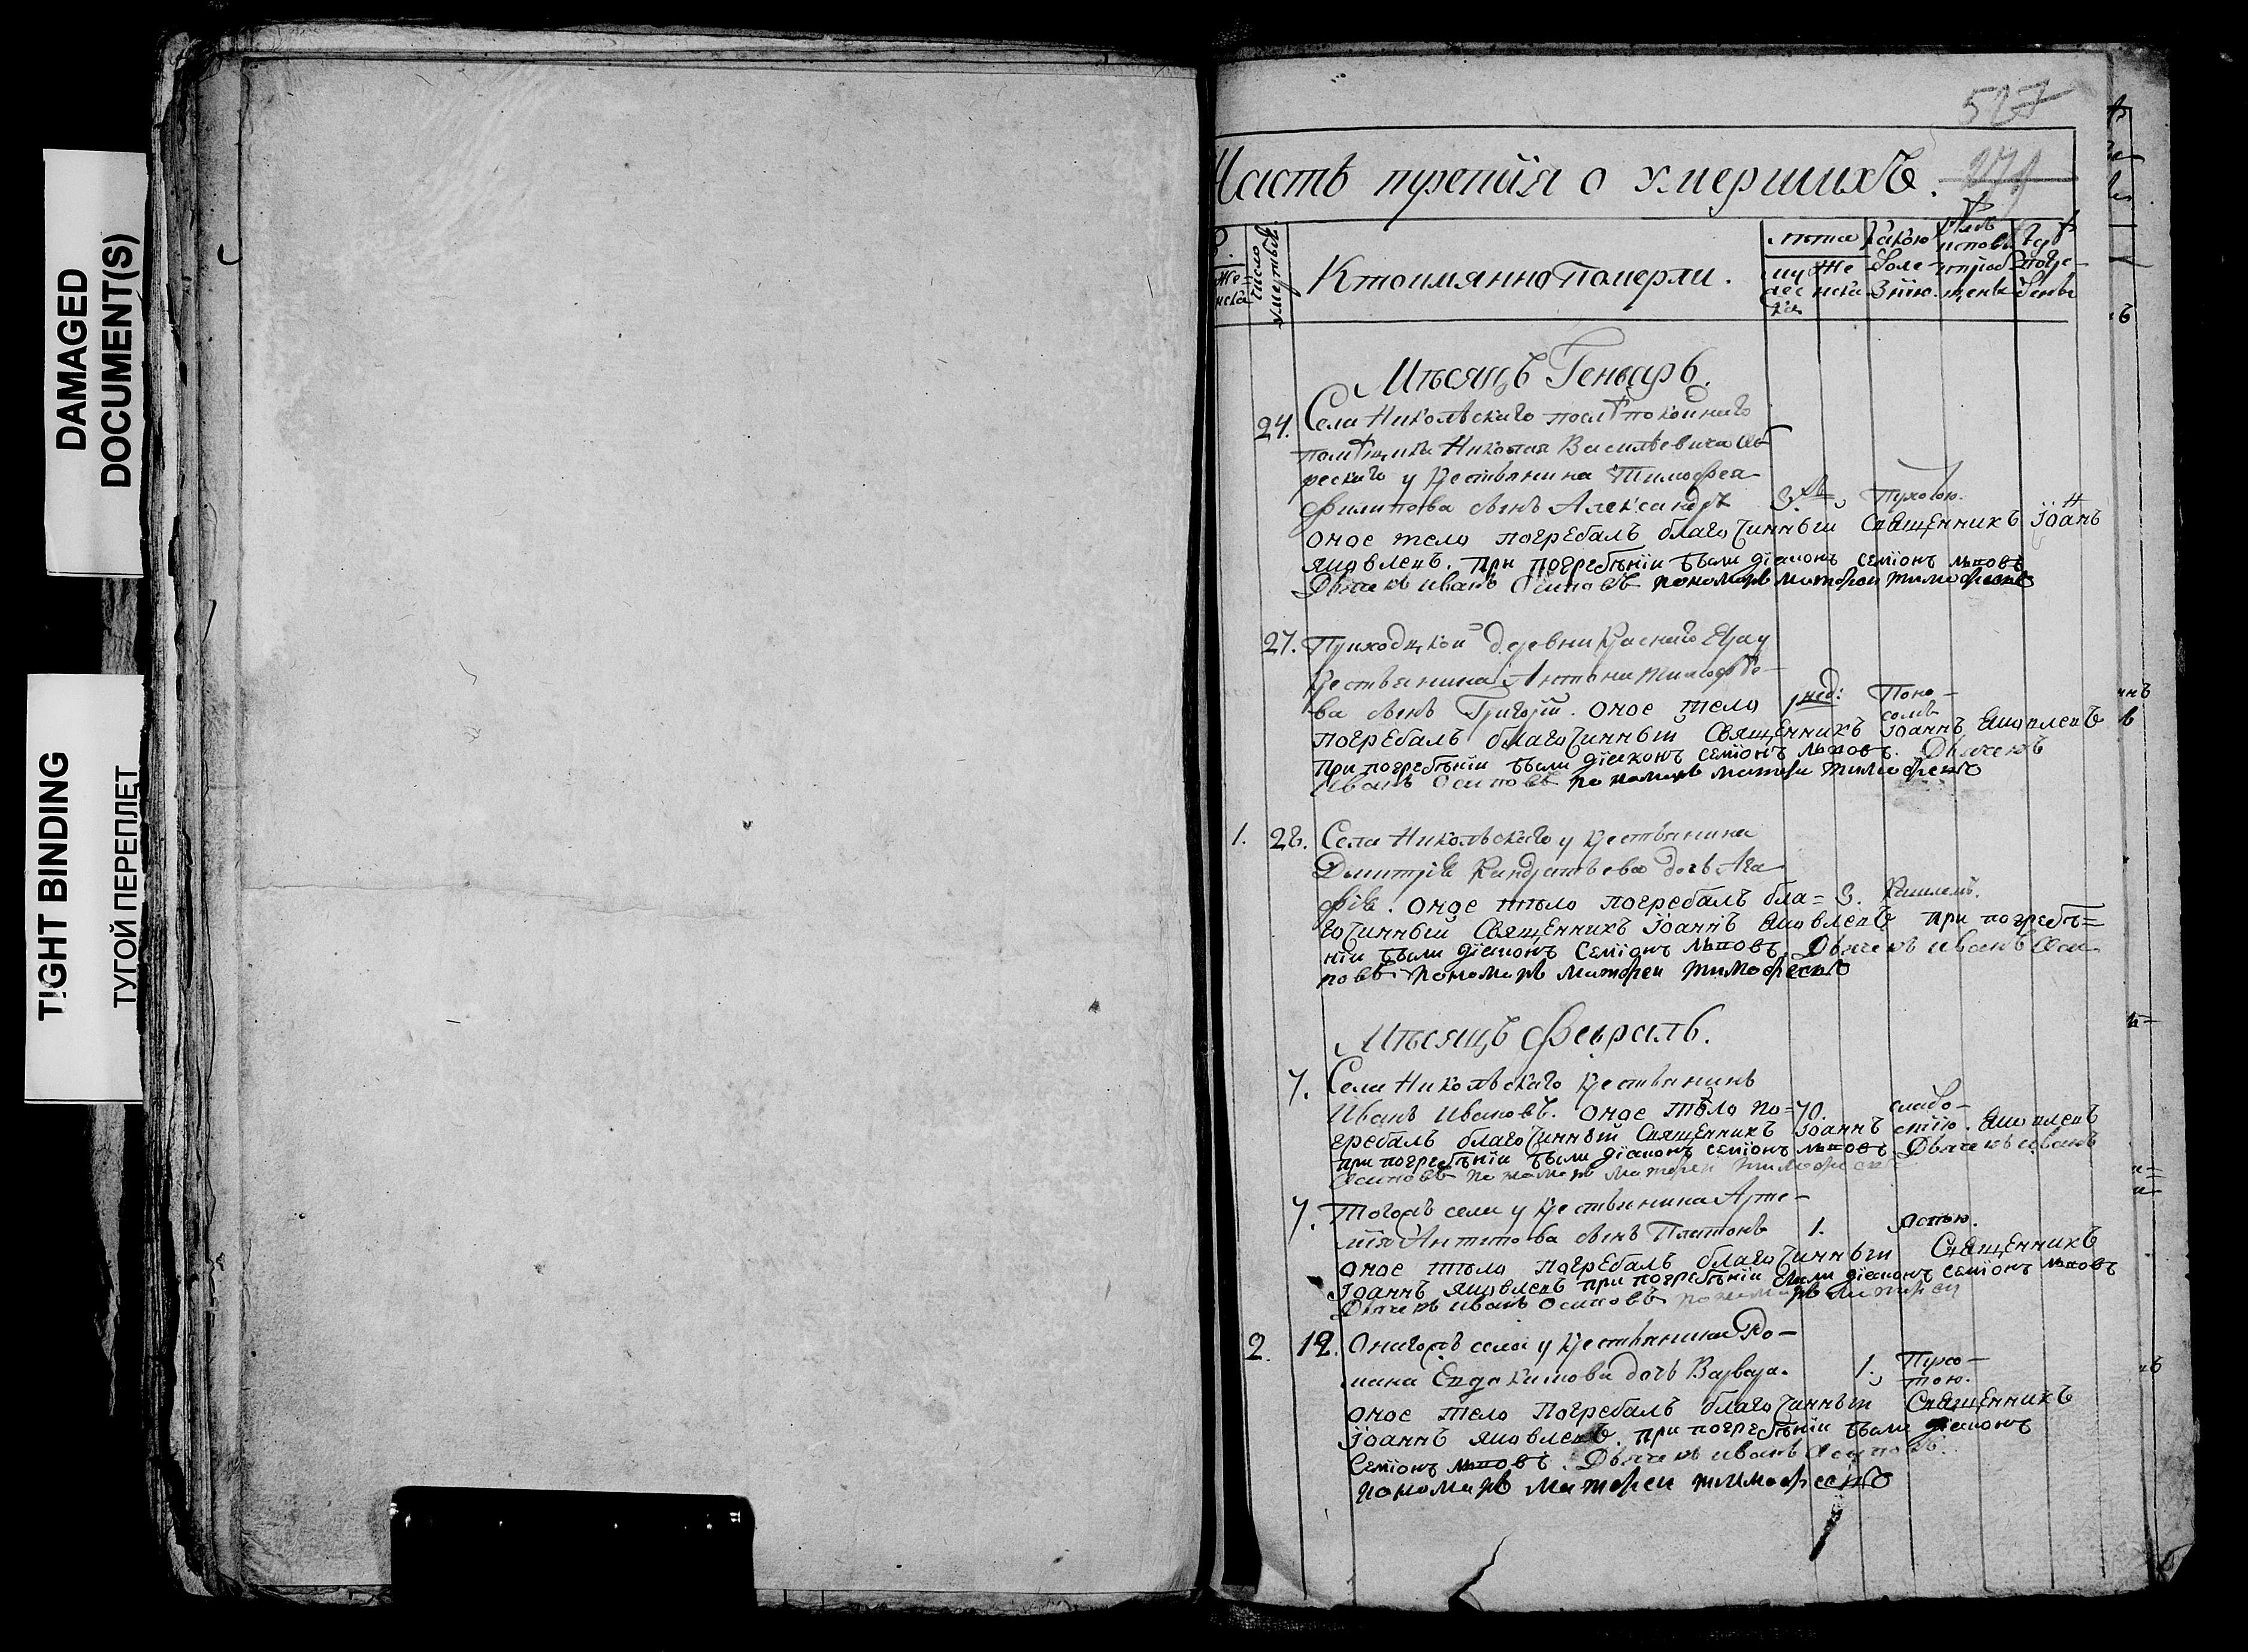 DAMAGED
DOCUMENT(S)
TIGHT BINDING
ТУГОЙ ПЕРЕПЛЕТ
527
271
Часть третия о умершихъ.
Же
нска
число
умертвых
Кто имянно померли.
лета
му
жес
ка
Же
нска
какою
боле
знию
Гдѣ
погре
бены
Мѣсяцъ Генварь.
24. Села Никольскаго послѣ покойнаго
помѣщика Николая Васильевича
рескаго у крестьянина Тимофея
Филипова сынъ Александръ 3.
оное тело погребалъ благочинный священникъ Iоанъ
Яковлевъ. при погребѣнiи были дiаконъ семiонъ львовъ
Дьячекъ иванъ Осиповъ пономарь матфеи тимофеевъ
27. Приходцкой деревни Краснаго
крестьянина Антона тимофѣе-
ва сынъ Григорiй. оное тело нед: Поно-
сомъ
погребалъ благочинный священникъ Iоаннъ Яковлевъ
при погребѣнiи были дiаконъ семiонъ львовъ. Дьячекъ
иванъ осиповъ пономарь матфеи тимофеевъ
1. 28. Села Никольскаго у крестьянина
Димитрiя Кандратьева дочь Ага
фiя. оное тѣло погребалъ бла= 3. Кашлемъ.
гочинный священникъ Iоаннъ Яковлевъ при погребѣ=
нiи были дiаконъ семiонъ львовъ. Дьячекъ иванъ Оси
повъ пономарь матфеи тимофеевъ
Мѣсяцъ Февраль.
7. Села Никольскаго крестьянинъ
Иванъ Ивановъ. оное тѣло по= 70. слабо-
стiю.
гребалъ благочинный священникъ Iоаннъ Яковлевъ
при погребѣнiи были дiаконъ семiонъ львовъ Дьячекъ иванъ
Осиповъ пономарь матфеи тимофеевъ
7. Тогожъ села у крестьянина Арте-
мiя Антипова сынъ Платонъ 1.
оное тѣло погребалъ благочинный священникъ
Iоаннъ Яковлевъ при погребѣнiи были дiаконъ семiонъ львовъ
Дьячекъ иванъ осиповъ пономарь матфеи
2. 12. Онагожъ села у крестьянина Ро-
мана Евдокимова дочь Варвара. 1.
оное тело погребалъ благочинный священникъ
Iоаннъ Яковлевъ. при погребѣнiи были дiаконъ
семiонъ львовъ. Дьячекъ иванъ Осиповъ.
пономарь матфеи тимофеевъ